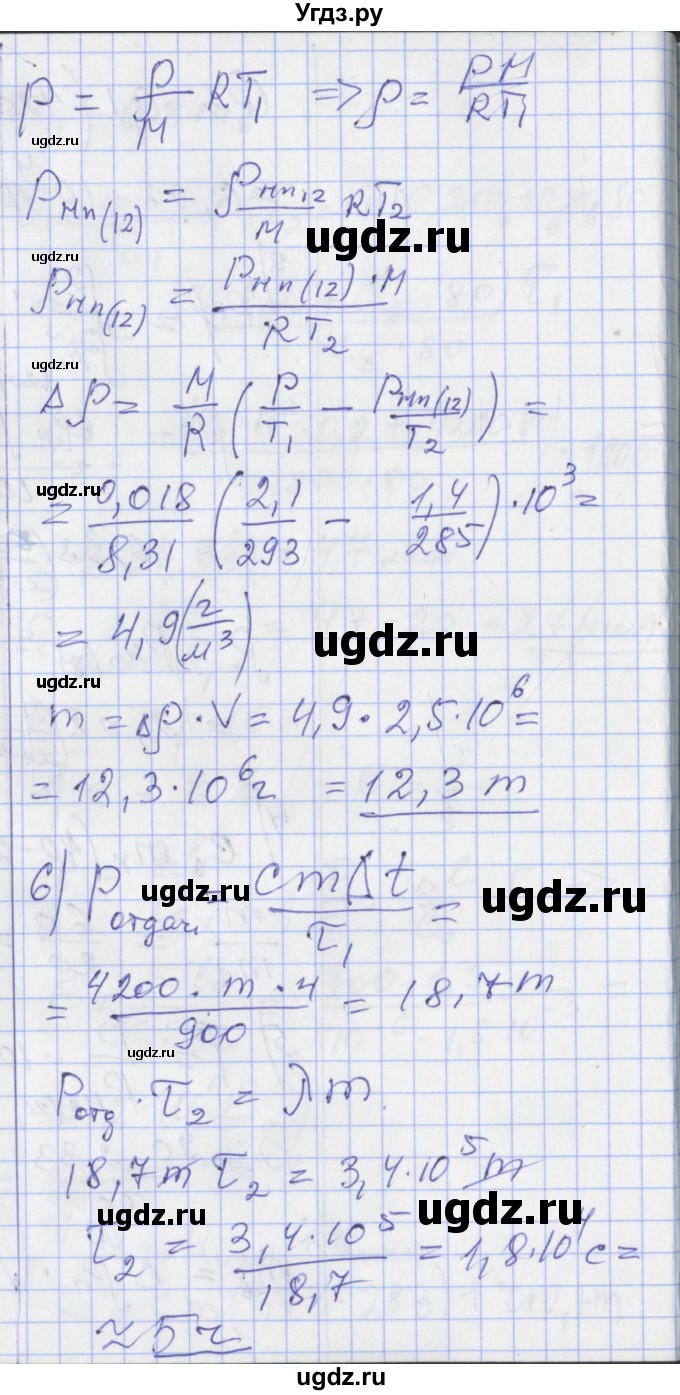 Угдз.ру
p = ρ/M RT₁ => ρ = PM/RT₁
ugdz.ru
Pнп(12) = ρнп12/M RT₂
ugdz.ru
ugdz.ru
ρнп(12) = Pнп(12)·M/RT₂
ugdz.ru
Δρ = M/R (P/T₁ − Pнп(12)/T₂) =
ugdz.ru
= 0,018/8,31 (2,1/293 − 1,4/285)·10³=
= 4,9(г/м³)
ugdz.ru
ugdz.ru
m = Δρ·V = 4,9·2,5·10⁶=
= 12,3·10⁶г = 12,3 т
6) Pотдач = cmΔt/τ₁ =
ugdz.ru
ugdz.ru
= 4200·m·4/900 = 18,7m
ugdz.ru
Pотд·τ₂ = λm
18,7m τ₂ = 3,4·10⁵m
ugdz.ru
ugdz.ru
τ₂ = 3,4·10⁵/18,7 = 1,8·10⁴с =
≈ 5ч
ugdz.ru